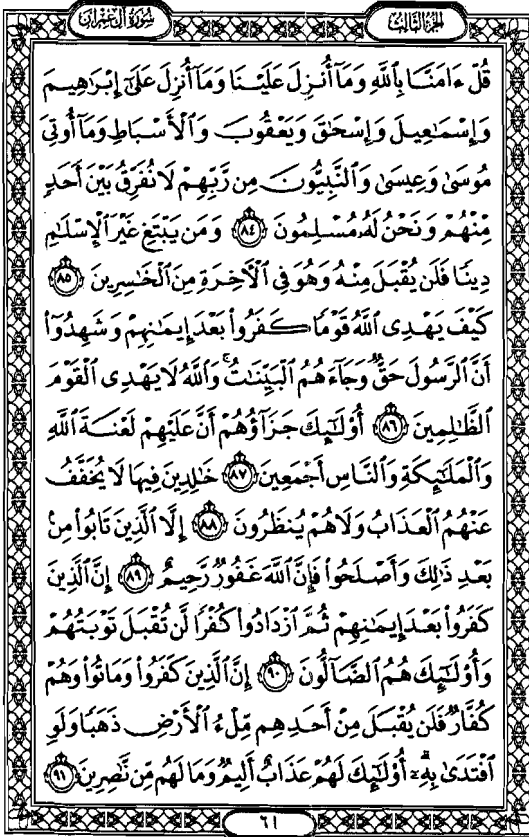 سُورَةُ آلِ عِمْرَانَ
الجُزْءُ الثَّالِثُ
قُلْ ءَامَنَّا بِٱللَّهِ وَمَآ أُنزِلَ عَلَيْنَا وَمَآ أُنزِلَ عَلَىٰٓ إِبْرَٰهِيمَ
وَإِسْمَٰعِيلَ وَإِسْحَٰقَ وَيَعْقُوبَ وَٱلْأَسْبَاطِ وَمَآ أُوتِىَ
مُوسَىٰ وَعِيسَىٰ وَٱلنَّبِيُّونَ مِن رَّبِّهِمْ لَا نُفَرِّقُ بَيْنَ أَحَدٍ
مِّنْهُمْ وَنَحْنُ لَهُۥ مُسْلِمُونَ ٨٤ وَمَن يَبْتَغِ غَيْرَ ٱلْإِسْلَٰمِ
دِينًا فَلَن يُقْبَلَ مِنْهُ وَهُوَ فِى ٱلْأَخِرَةِ مِنَ ٱلْخَٰسِرِينَ ٨٥
كَيْفَ يَهْدِى ٱللَّهُ قَوْمًا كَفَرُوا۟ بَعْدَ إِيمَٰنِهِمْ وَشَهِدُوٓا۟
أَنَّ ٱلرَّسُولَ حَقٌّ وَجَآءَهُمُ ٱلْبَيِّنَٰتُ ۚ وَٱللَّهُ لَا يَهْدِى ٱلْقَوْمَ
ٱلظَّٰلِمِينَ ٨٦ أُو۟لَٰٓئِكَ جَزَآؤُهُمْ أَنَّ عَلَيْهِمْ لَعْنَةَ ٱللَّهِ
وَٱلْمَلَٰٓئِكَةِ وَٱلنَّاسِ أَجْمَعِينَ ٨٧ خَٰلِدِينَ فِيهَا لَا يُخَفَّفُ
عَنْهُمُ ٱلْعَذَابُ وَلَا هُمْ يُنظَرُونَ ٨٨ إِلَّا ٱلَّذِينَ تَابُوا۟ مِنۢ
بَعْدِ ذَٰلِكَ وَأَصْلَحُوا۟ فَإِنَّ ٱللَّهَ غَفُورٌ رَّحِيمٌ ٨٩ إِنَّ ٱلَّذِينَ
كَفَرُوا۟ بَعْدَ إِيمَٰنِهِمْ ثُمَّ ٱزْدَادُوا۟ كُفْرًا لَّن تُقْبَلَ تَوْبَتُهُمْ
وَأُو۟لَٰٓئِكَ هُمُ ٱلضَّآلُّونَ ٩٠ إِنَّ ٱلَّذِينَ كَفَرُوا۟ وَمَاتُوا۟ وَهُمْ
كُفَّارٌ فَلَن يُقْبَلَ مِنْ أَحَدِهِم مِّلْءُ ٱلْأَرْضِ ذَهَبًا وَلَوِ
ٱفْتَدَىٰ بِهِۦٓ ۗ أُو۟لَٰٓئِكَ لَهُمْ عَذَابٌ أَلِيمٌ وَمَا لَهُم مِّن نَّٰصِرِينَ ٩١
٦١